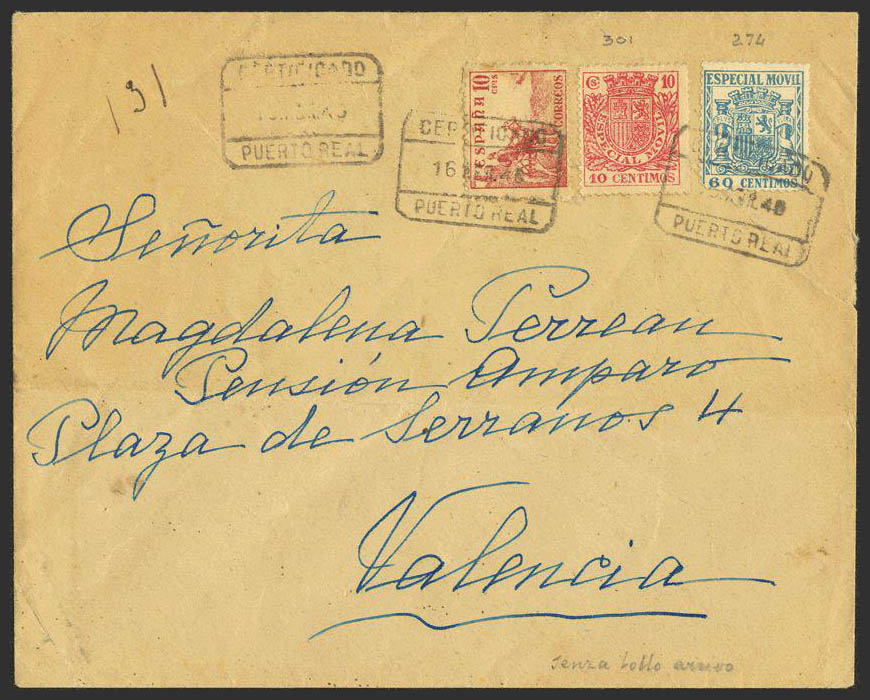 301
274
131
CERTIFICADO
PUERTO REAL
ESPAÑA 10 CTS
CORREOS
CERTIFICADO
16 48
PUERTO REAL
Cs. 10
ESPECIAL MOVIL
10 CENTIMOS
ESPECIAL MOVIL
60 CENTIMOS
PUERTO REAL
Señorita
Magdalena Perreau
Pensión Amparo
Plaza de Serranos 4
Valencia
senza bollo arrivo